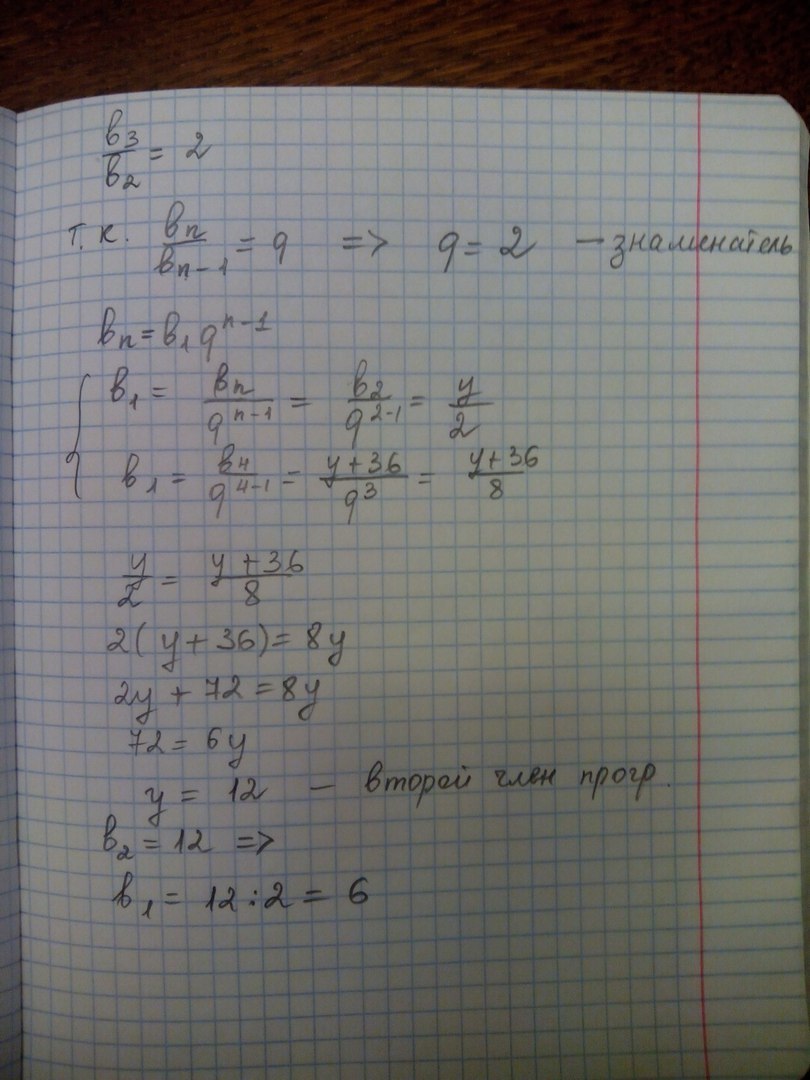 b₃/b₂ = 2
т.к. bₙ/bₙ₋₁ = q => q = 2 — знаменатель
bₙ = b₁ qⁿ⁻¹
{ b₁ = bₙ/qⁿ⁻¹ = b₂/q²⁻¹ = y/2
b₁ = b₄/q⁴⁻¹ = (y+36)/q³ = (y+36)/8
y/2 = (y+36)/8
2(y+36) = 8y
2y + 72 = 8y
72 = 6y
y = 12 — второй член прогр.
b₂ = 12 =>
b₁ = 12:2 = 6